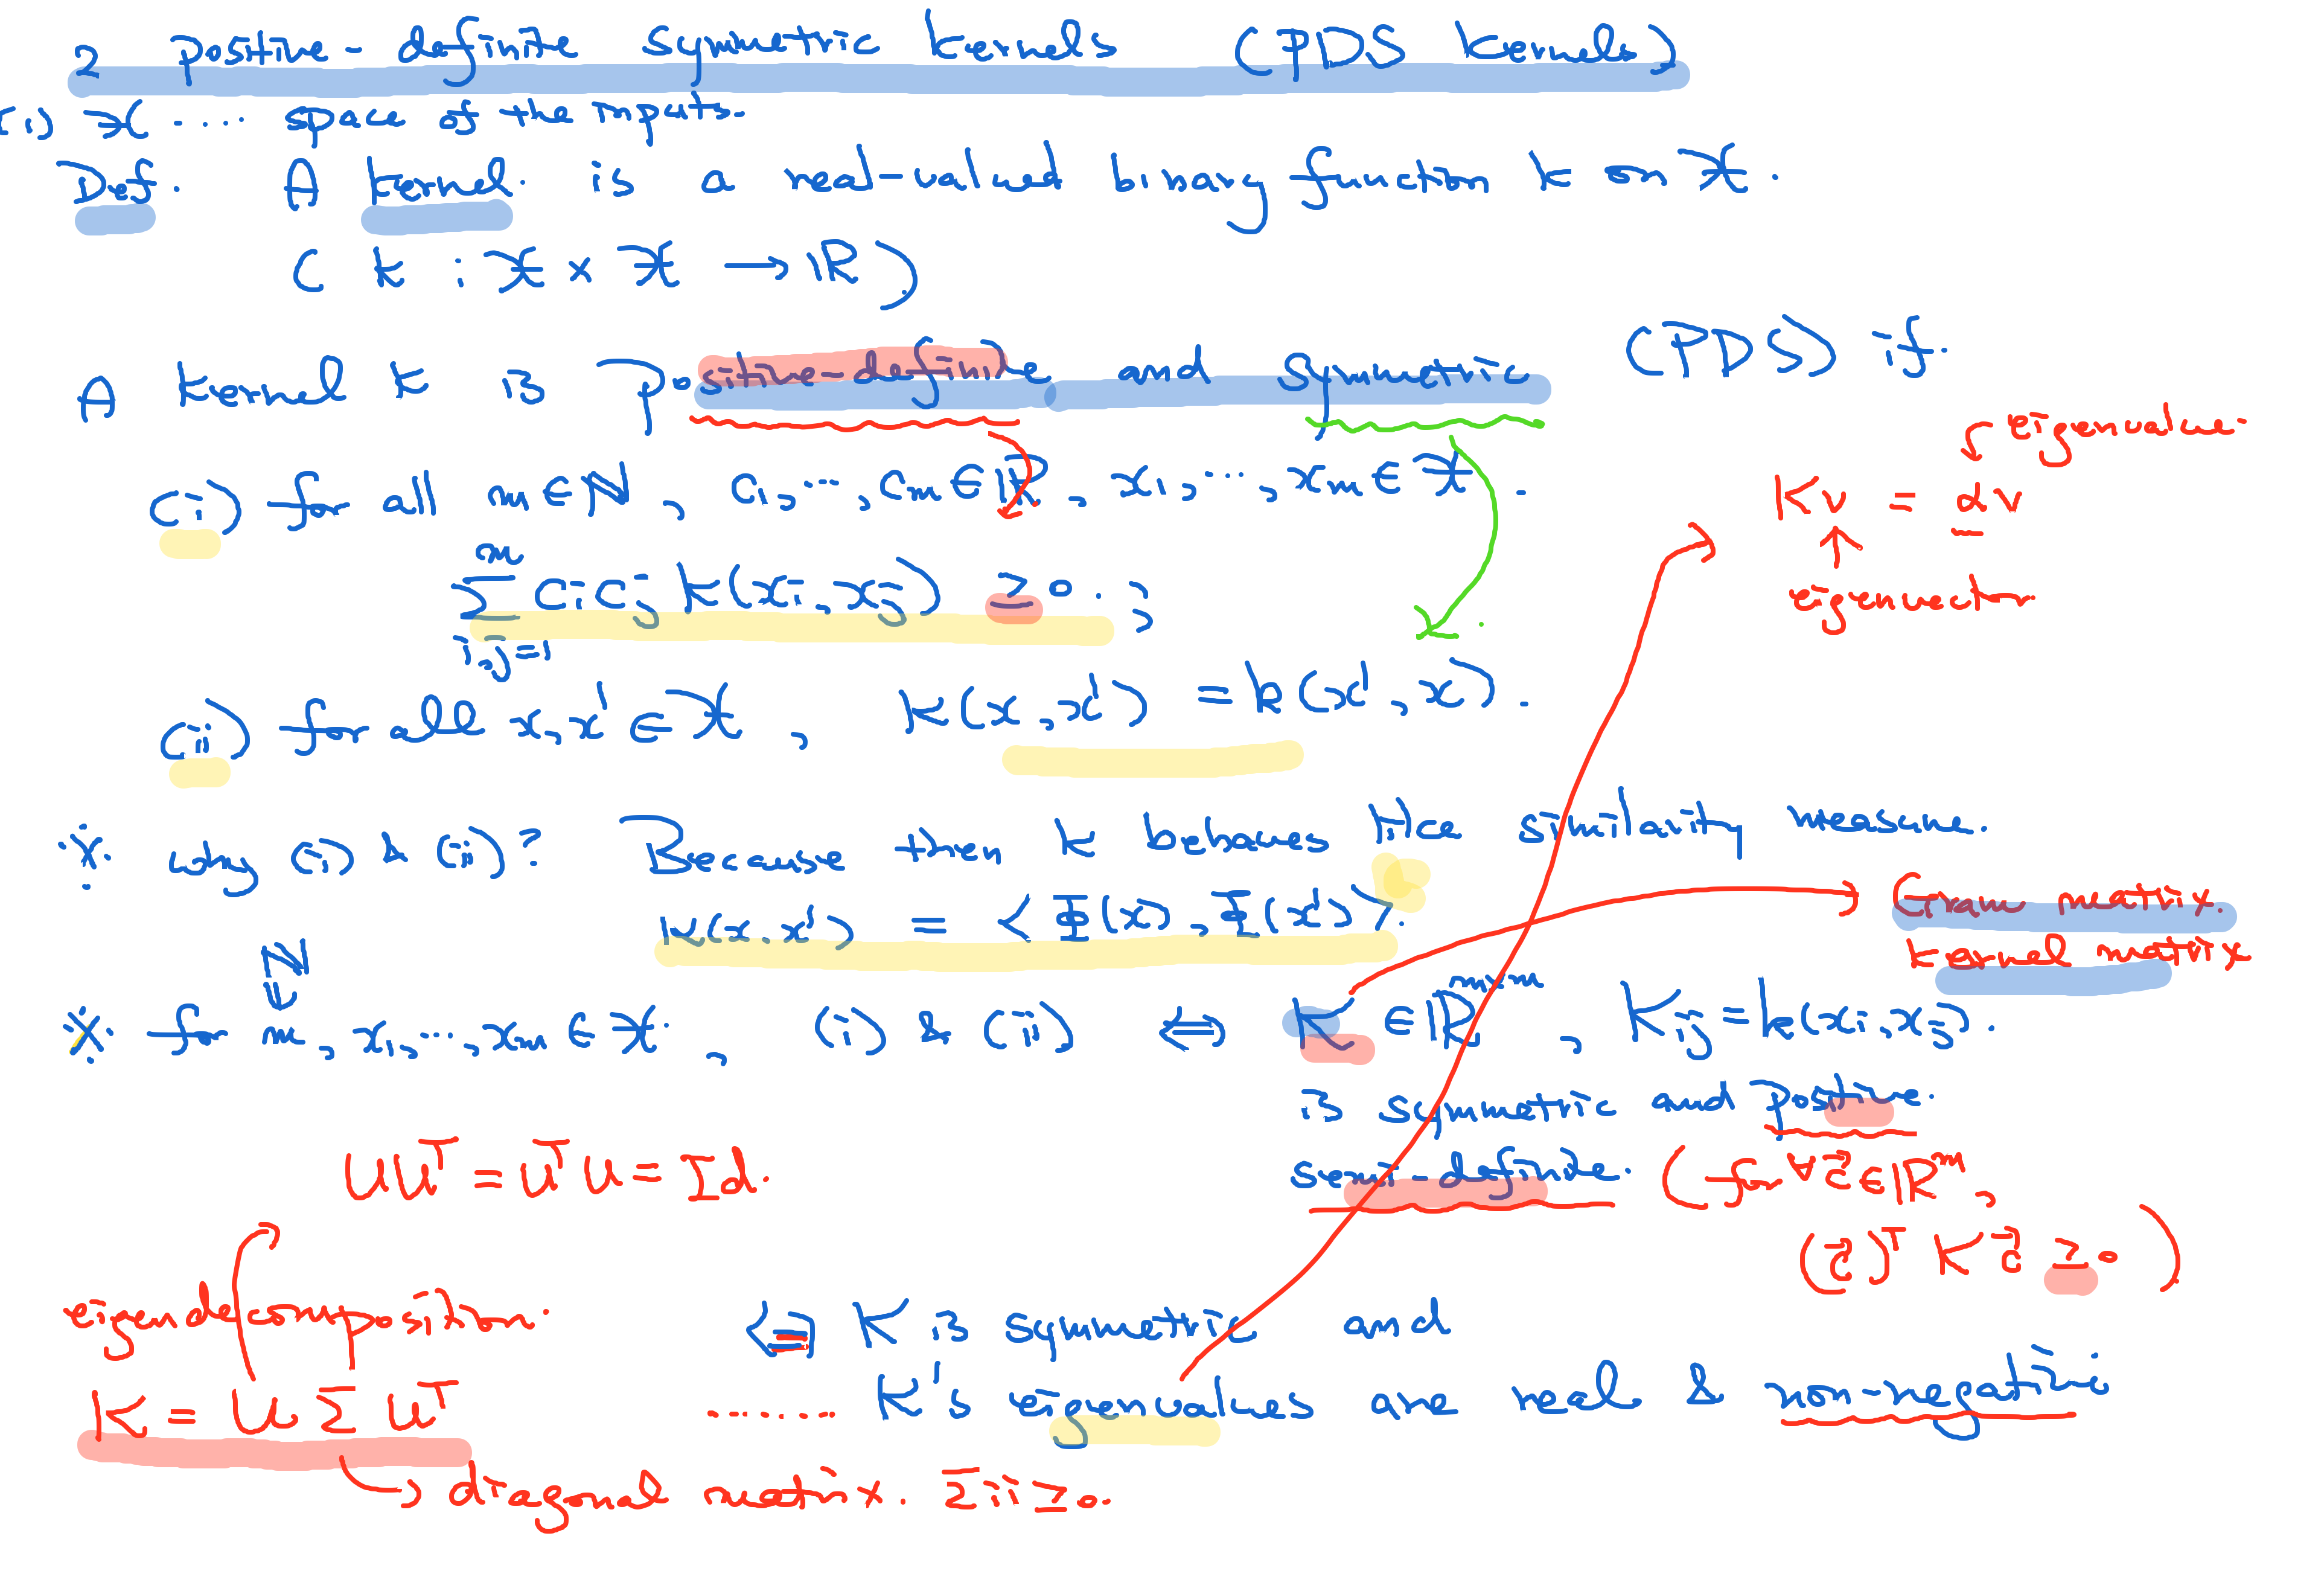 2 positive-definite symmetric kernels (PDS kernels)
(i) 𝒳 .... space of the inputs.
Def. A kernel is a real-valued binary function k on 𝒳.
( k : 𝒳 × 𝒳 → ℝ )
A kernel k is positive-definite and symmetric (PDS) if
(i) for all m ∈ ℕ, c₁, ..., cₘ ∈ ℝ, x₁, ..., xₘ ∈ 𝒳.
eigenvalue.
Kv = αv
eigenvector
∑_{i,j=1}^{m} cᵢ cⱼ k(xᵢ, xⱼ) ≥ 0. ;
(ii) for all x, x' ∈ 𝒳, k(x, x') = k(x', x).
※ why (i) & (ii)? Because then k behaves like similarity measure.
k(x, x') = < Φ(x), Φ(x') >.
Gram matrix.
kernel matrix
ℕ
※ for m, x₁, ..., xₘ ∈ 𝒳, (i) & (ii) ⇔ K ∈ ℝ^{m×m}, Kᵢⱼ = k(xᵢ, xⱼ).
is symmetric and positive.
semi-definite. (for ∀c⃗ ∈ ℝᵐ,
(c⃗)ᵀ K c⃗ ≥ 0 )
UUᵀ = UᵀU = Id.
eigendecomposition.
⇔ K is symmetric and
K = U Σ Uᵀ
........ K's eigenvalues are real & non-negative
→ diagonal matrix. Σᵢᵢ ≥ 0.